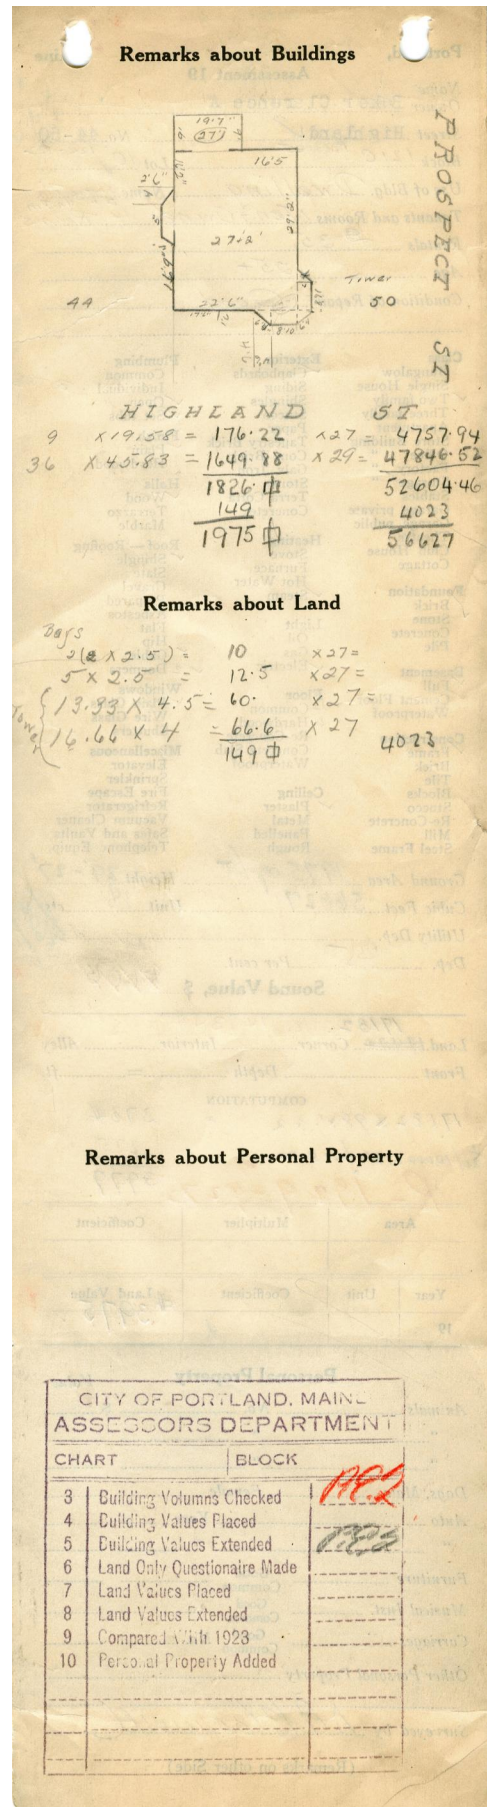 Remarks about Buildings
PROSPECT ST
19.7"
27
16.5
2'6"
27.2'
Tower
50
44
22'6"
HIGHLAND ST
9 x 19.58 = 176.22 x 27 = 4757.94
36 x 45.83 = 1649.88 x 29 = 47846.52
1826 52604.46
149 4023
1975 56627
Remarks about Land
Bays
2(2 x 2.5) = 10 x 27 =
5 x 2.5 = 12.5 x 27 =
Tower
13.33 x 4.5 = 60. x 27 =
16.66 x 4 = 66.6 x 27
149 4023
Remarks about Personal Property
CITY OF PORTLAND, MAINE
ASSESSORS DEPARTMENT
CHART BLOCK
3 Building Volumns Checked
4 Building Values Placed
5 Building Values Extended
6 Land Only Questionaire Made
7 Land Values Placed
8 Land Values Extended
9 Compared With 1923
10 Personal Property Added